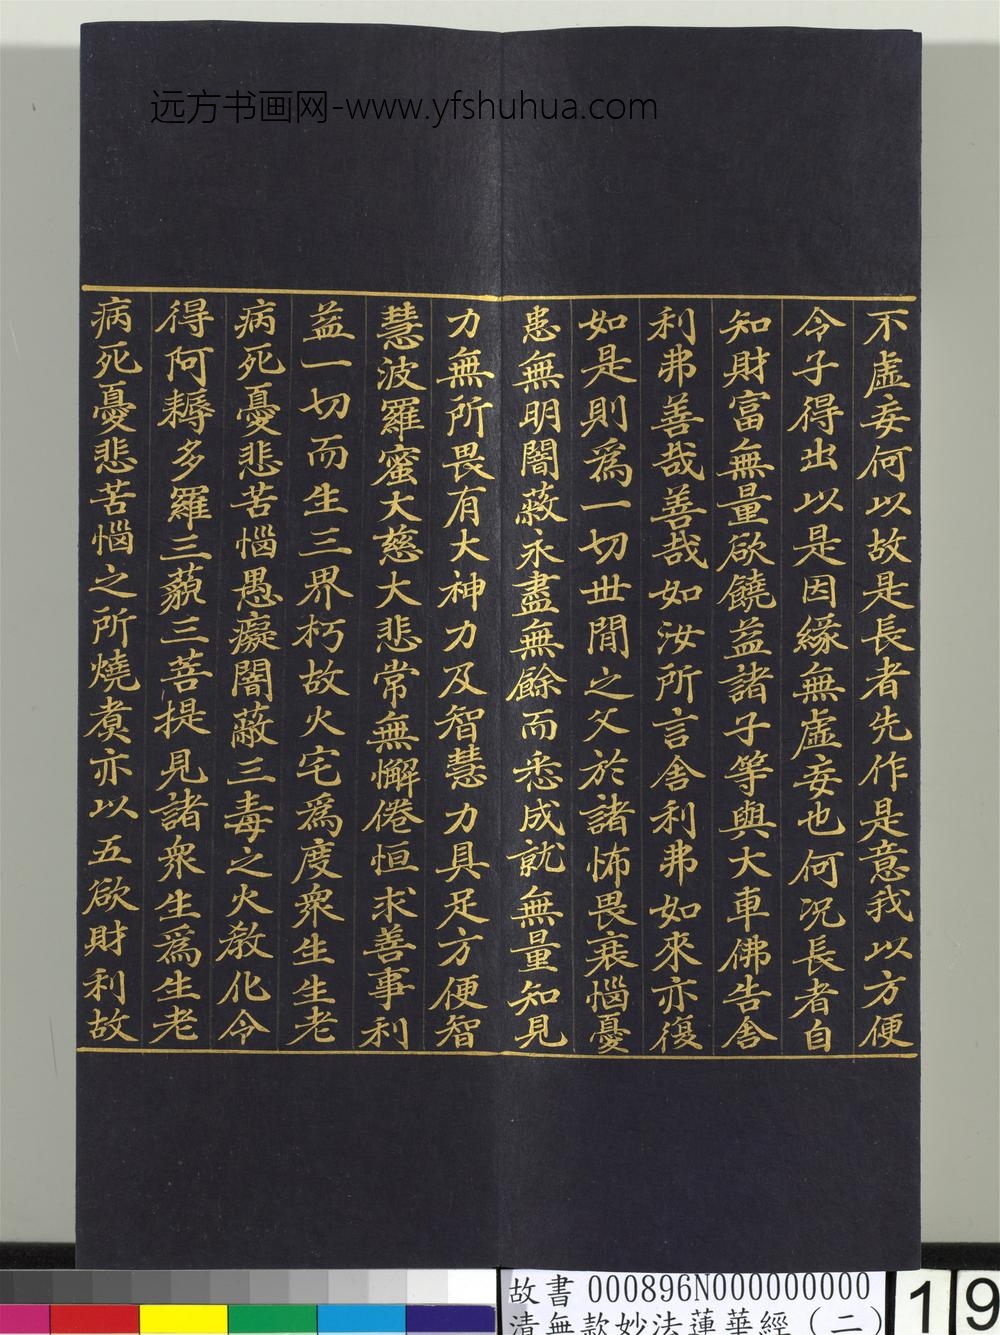 远方书画网-www.yfshuhua.com
不虛妄何以故是長者先作是意我以方便
令子得出以是因緣無虛妄也何況長者自
知財富無量欲饒益諸子等與大車佛告舍
利弗善哉善哉如汝所言舍利弗如來亦復
如是則為一切世間之父於諸怖畏衰惱憂
患無明闇蔽永盡無餘而悉成就無量知見
力無所畏有大神力及智慧力具足方便智
慧波羅蜜大慈大悲常無懈倦恒求善事利
益一切而生三界朽故火宅為度眾生生老
病死憂悲苦惱愚癡闇蔽三毒之火教化令
得阿耨多羅三藐三菩提見諸眾生為生老
病死憂悲苦惱之所燒煮亦以五欲財利故
故書000896N000000000
清無款妙法蓮華經(二)
19